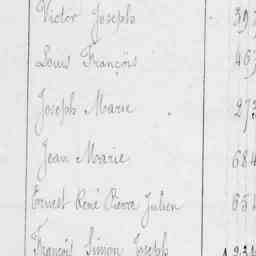 Victor Joseph 397
Louis François 467
Joseph Marie 273
Jean Marie 684
Ernest René Pierre Julien 654
François Simon Joseph